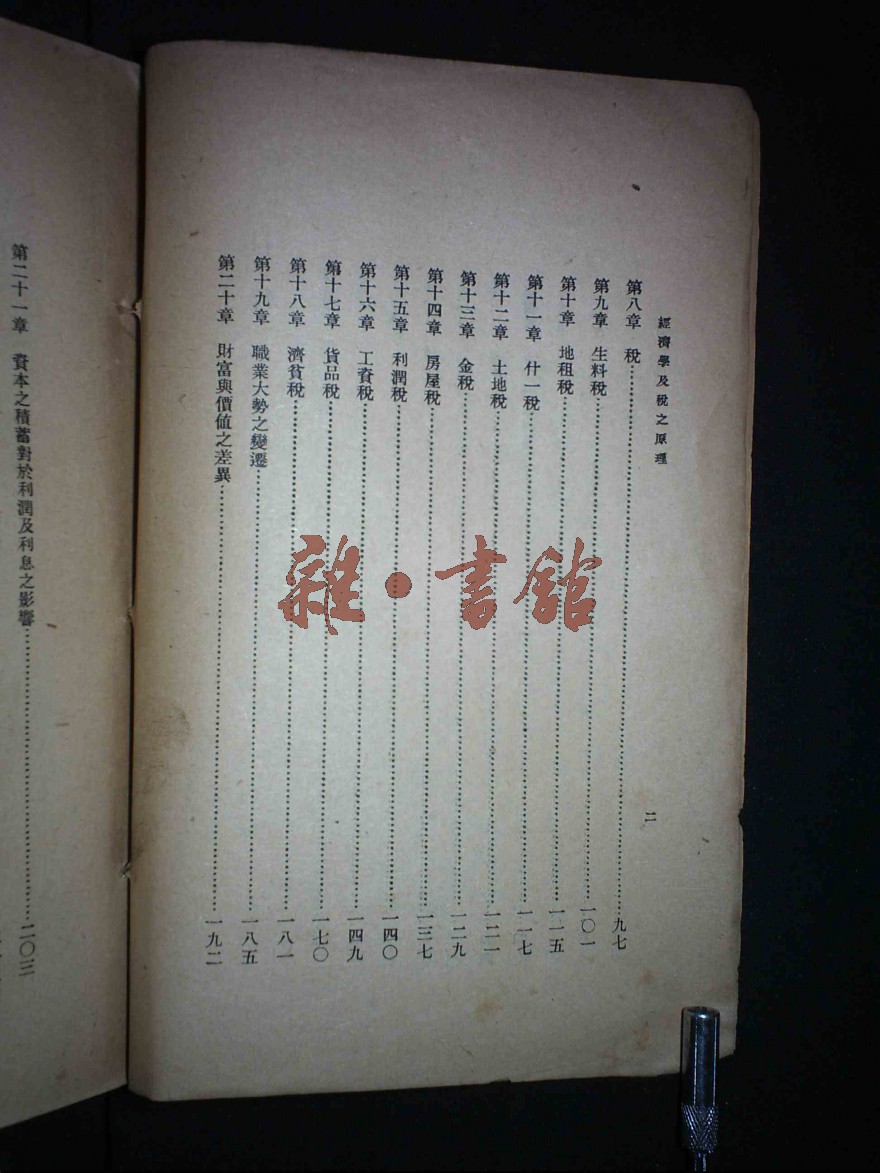 經濟學及稅之原理
二
第八章 稅……九七
第九章 生料稅……一〇一
第十章 地租稅……一一五
第十一章 什一稅……一一七
第十二章 土地稅……一二一
第十三章 金稅……一二九
第十四章 房屋稅……一三七
第十五章 利潤稅……一四〇
第十六章 工資稅……一四九
第十七章 貨品稅……一七〇
第十八章 濟貧稅……一八一
第十九章 職業大勢之變遷……一八五
第二十章 財富與價值之差異……一九二
第二十一章 資本之積蓄對於利潤及利息之影響……二〇三
雜·書館